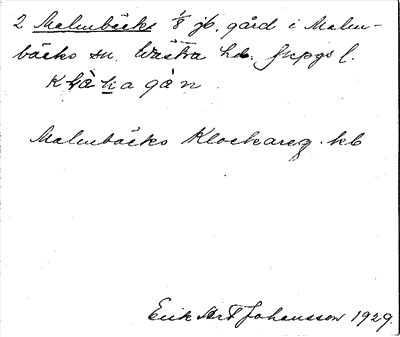 2 Malmbäcks 1/8 jb. gård i Malm-
bäcks sn. Västra hd. Jkpgs l.
klåkagån
Malmbäcks Klockareg. kb
Erik Art Johansson 1929.